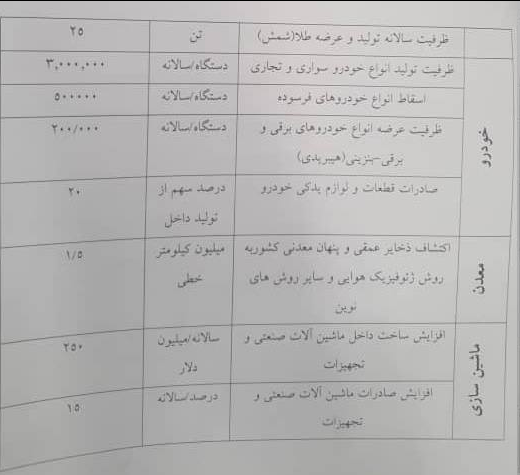 ظرفیت سالانه تولید و عرضه طلا(شمش) تن ۲۵
خودرو
ظرفیت تولید انواع خودرو سواری و تجاری دستگاه/سالانه ۳,۰۰۰,۰۰۰
اسقاط انواع خودروهای فرسوده دستگاه/سالانه ۵۰۰۰۰۰
ظرفیت عرضه انواع خودروهای برقی و دستگاه/سالانه ۲۰۰/۰۰۰
برقی-بنزینی(هیبریدی)
صادرات قطعات و لوازم یدکی خودرو درصد سهم از ۲۰
تولید داخل
معدن
اکتشاف ذخایر عمقی و پنهان معدنی کشوربه میلیون کیلومتر ۱/۵
روش ژئوفیزیک هوایی و سایر روش های خطی
نوین
ماشین سازی
افزایش ساخت داخل ماشین آلات صنعتی و سالانه/میلیون ۲۵۰
تجهیزات دلار
افزایش صادرات ماشین آلات صنعتی و درصد/سالانه ۱۵
تجهیزات